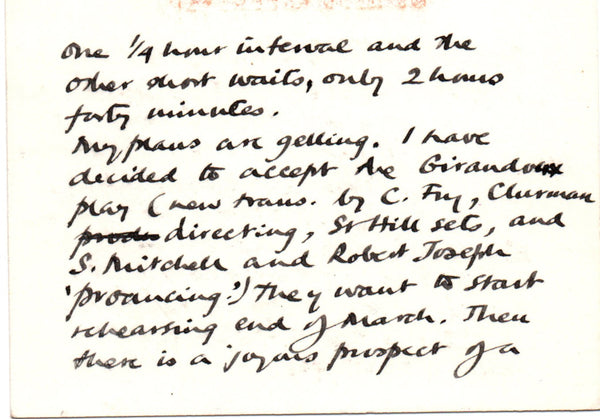 one 1/4 hour interval and the
other short waits, only 2 hours
forty minutes.
My plans are gelling. I have
decided to accept the Giraudoux
play (new trans. by C. Fry, Clurman
produ directing, St Hill sets, and
S. Mitchell and Robert Joseph
'producing'!) They want to start
rehearsing end of March. Then
there is a joyous prospect of a